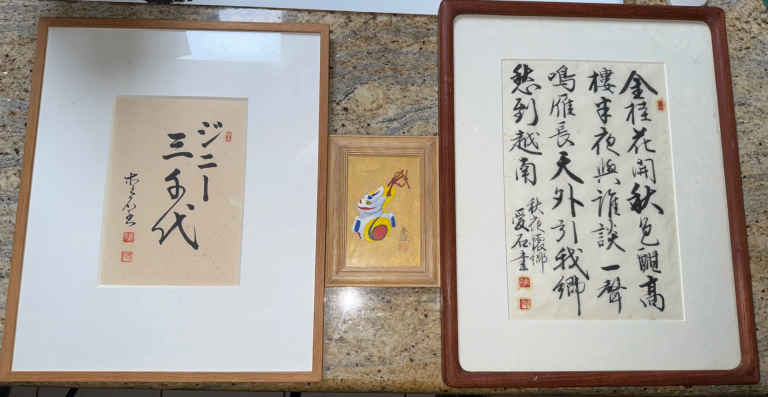 ジニー
三千代
金桂花開秋色酣高
樓半夜與誰談一聲
鳴雁長天外引我鄉
愁到越南
秋夜懷鄉
愛石書